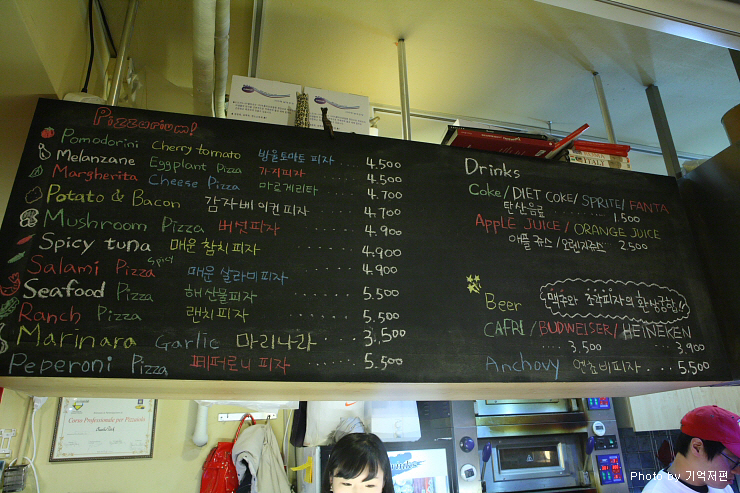 Pizzarium!
Pomodorini Cherry tomato 방울토마토 피자 ... 4.500
Melanzane Eggplant Pizza 가지피자 ... 4.500
Margherita Cheese Pizza 마르게리타 ... 4.700
Potato & Bacon 감자베이컨피자 ... 4.700
Mushroom Pizza 버섯피자 ... 4.900
Spicy tuna 매운 참치 피자 ... 4.900
Salami Pizza spicy 매운 살라미피자 ... 4.900
Seafood Pizza 해산물피자 ... 5.500
Ranch Pizza 랜치피자 ... 5.500
Marinara Garlic 마리나라 ... 3.500
Peperoni Pizza 페퍼로니 피자 ... 5.500
Drinks
Coke / DIET COKE / SPRITE / FANTA
탄산음료 ... 1.500
Apple JUICE / ORANGE JUICE
애플쥬스 / 오렌지쥬스 2.500
맥주와 조각피자의 환상궁합!!
Beer
CAFRI / BUDWEISER / HEINEKEN
3.500 ... 3.900
Anchovy 엔쵸비피자 ... 5.500
ITALIE
Corso Professionale per Pizzaiolo
Photo by 기억저편